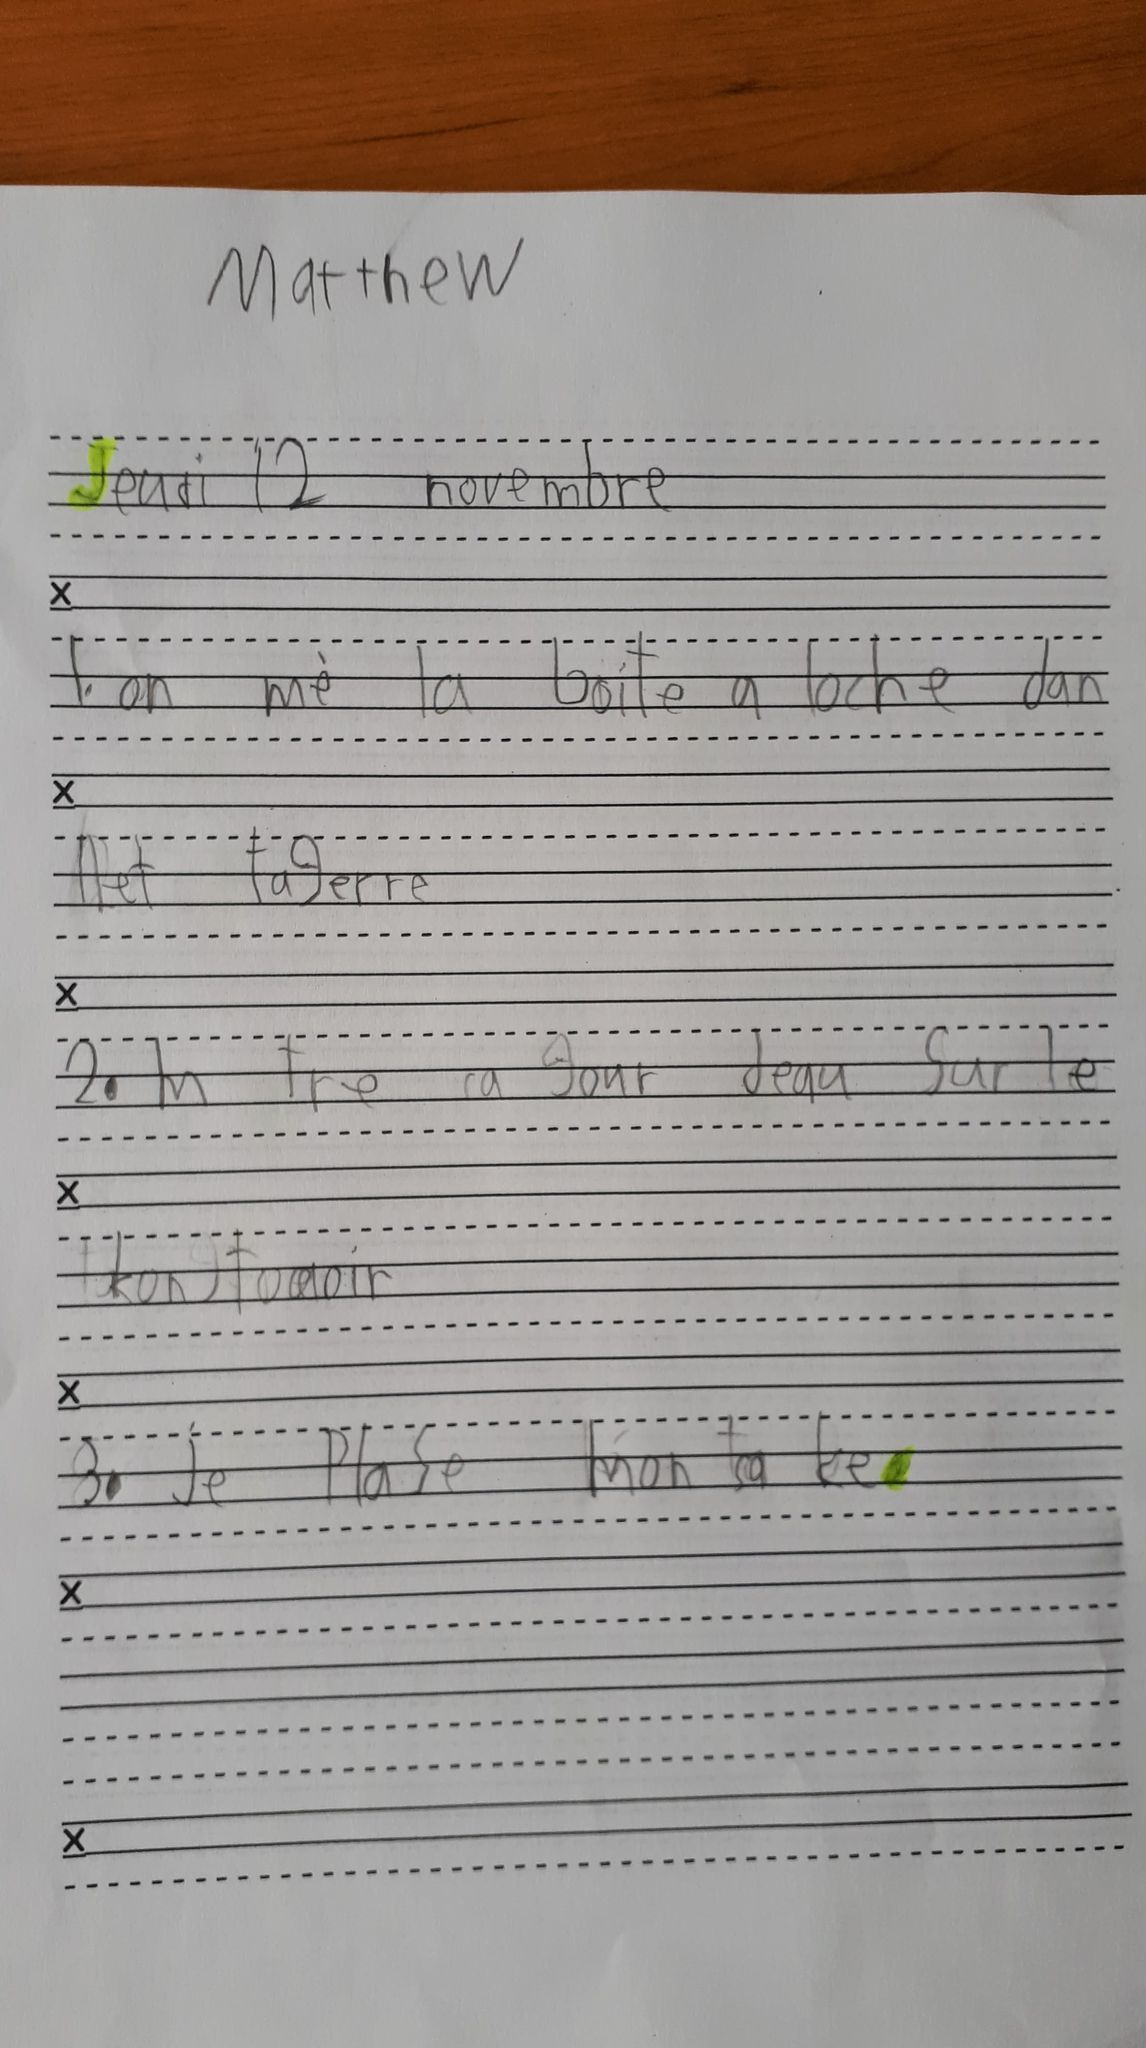 Matthew
Jeudi 12 novembre
x
1. on mè la boite a loche dan
x
taGerre
x
2. tre ca Gour deau Sur le
x
x
3. Je PlaSe mon sa ke.
x
x